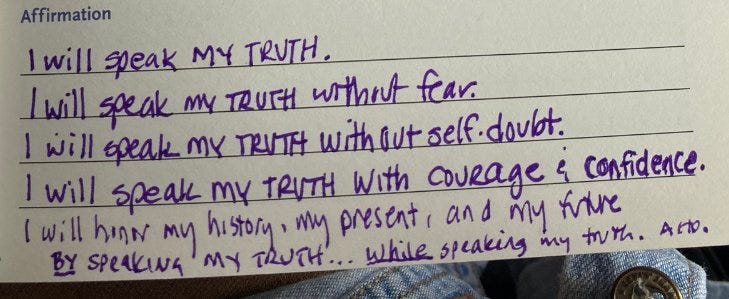 Affirmation
I will speak MY TRUTH.
I will speak my TRUTH without fear.
I will speak MY TRUTH without self-doubt.
I will speak my TRUTH with courage & confidence.
I will honor my history, my present, and my future
BY SPEAKING MY TRUTH... while speaking my truth.